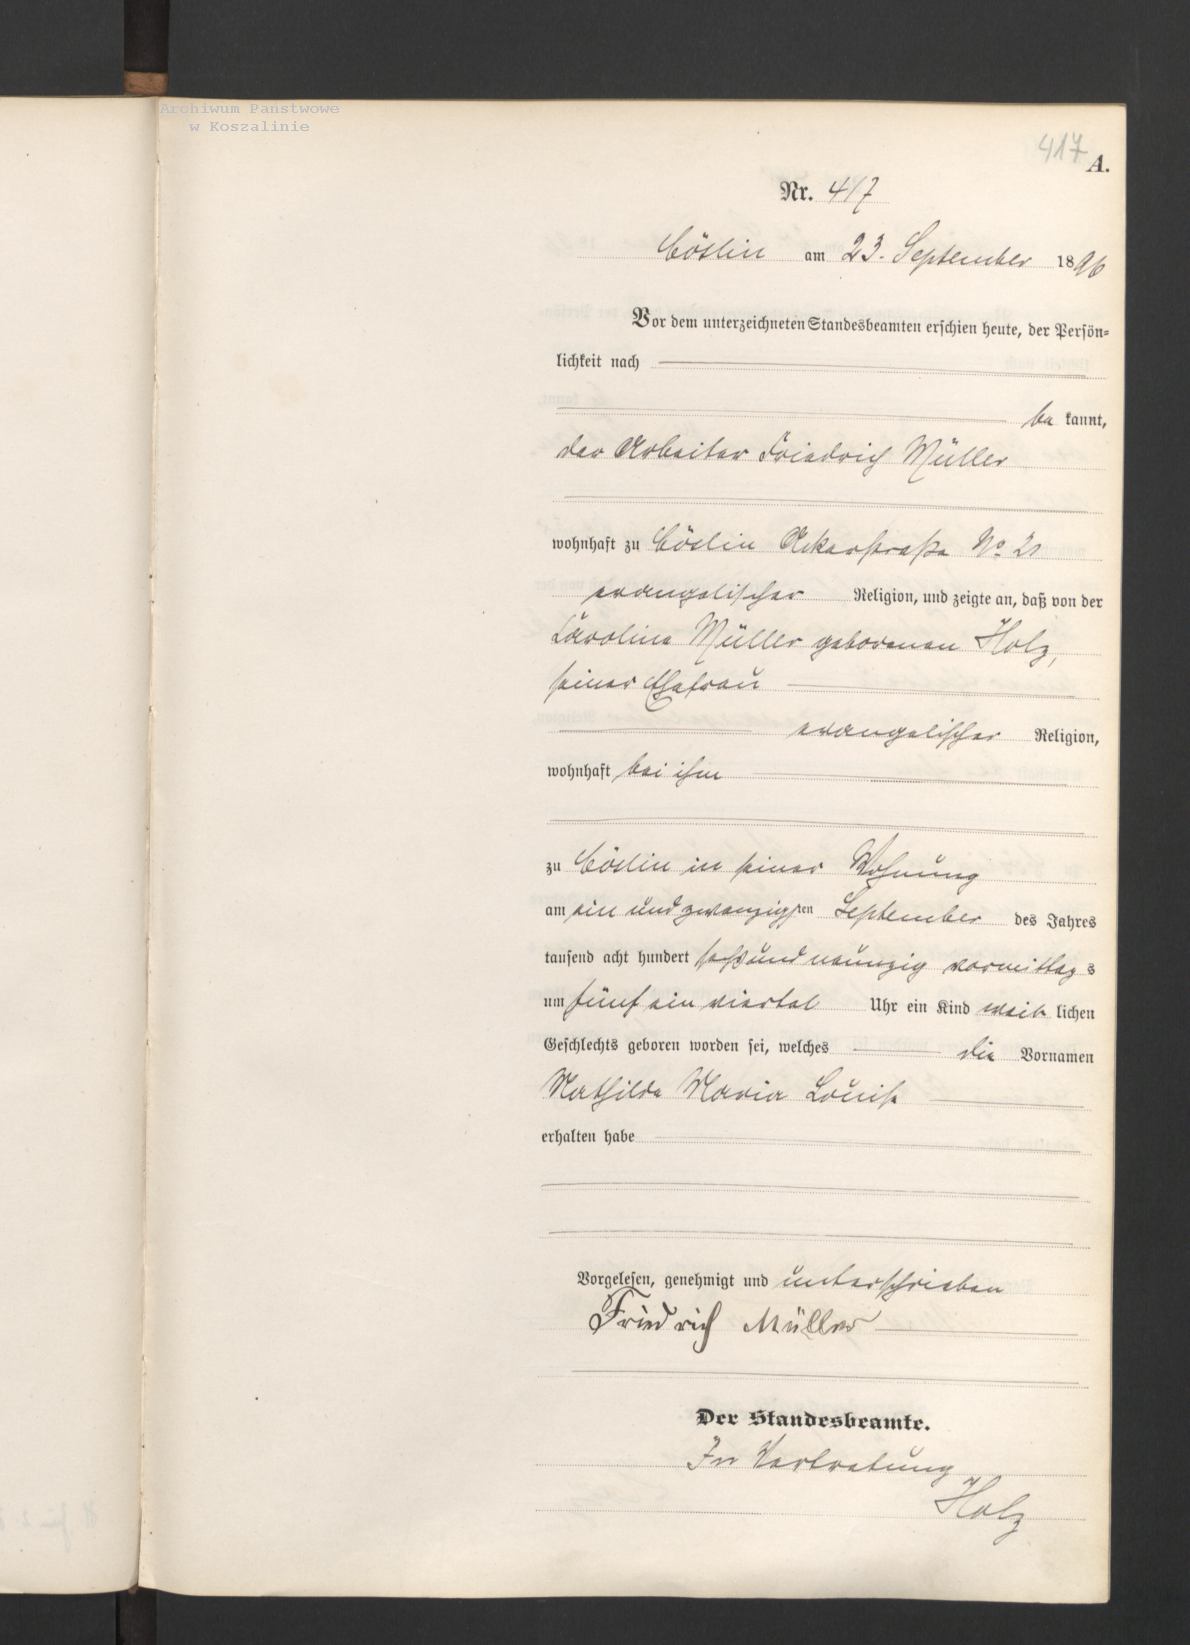 Archiwum Państwowe
w Koszalinie
417
A.
Nr. 417
Cöslin am 23. September 1896
Vor dem unterzeichneten Standesbeamten erschien heute, der Persön-
lichkeit nach
be kannt,
der Arbeiter Friedrich Müller
wohnhaft zu Cöslin Ackerstraße No 21
evangelischer Religion, und zeigte an, daß von der
Caroline Müller geborenen Holz,
seiner Ehefrau
evangelischer Religion,
wohnhaft bei ihm
zu Cöslin in seiner Wohnung
am ein und zwanzigsten September des Jahres
tausend acht hundert sechsundneunzig vormittags
um fünf ein viertel Uhr ein Kind weib lichen
Geschlechts geboren worden sei, welches die Vornamen
Mathilde Maria Louise
erhalten habe
Vorgelesen, genehmigt und unterschrieben
Friedrich Müller
Der Standesbeamte.
In Vertretung
Holz